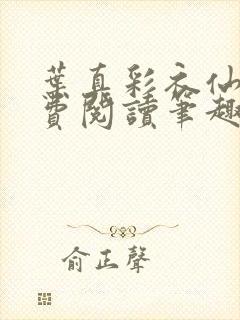 葉真彩衣仙
費閱讀筆趣
俞正聲